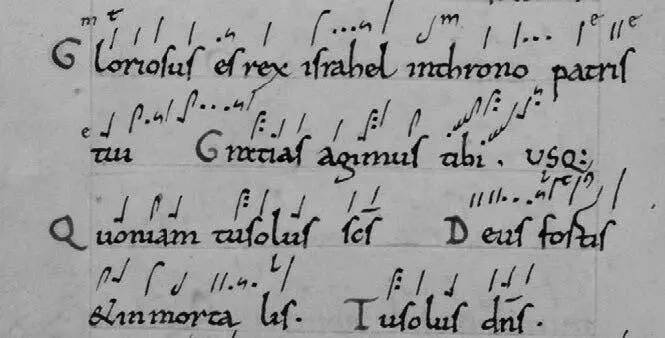 Gloriosus es rex israhel inthrono patris
tui Gratias agimus tibi . USQ:,
Quoniam tusolus scs Deus fortis
&inmorta lis. Tusolus dns.